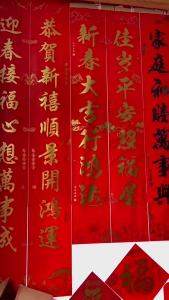 家庭和睦萬事興
佳岁平安招福星
新春大吉行鴻运
恭賀新禧順景開鴻運
迎春接福心想萬事成
福